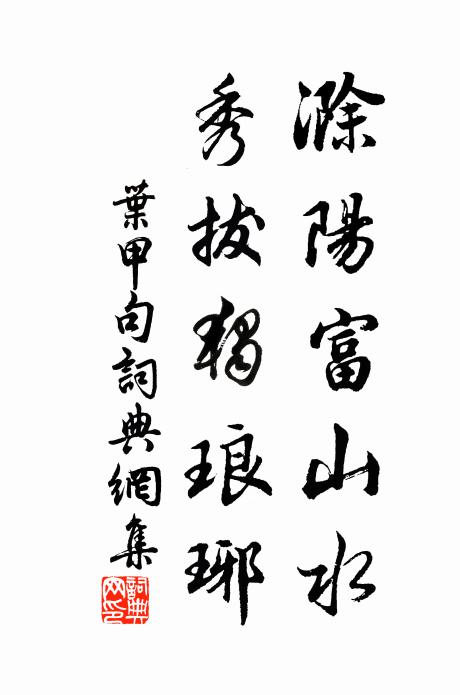 滁陽富山水
秀拔獨琅琊
葉甲句詞典網集